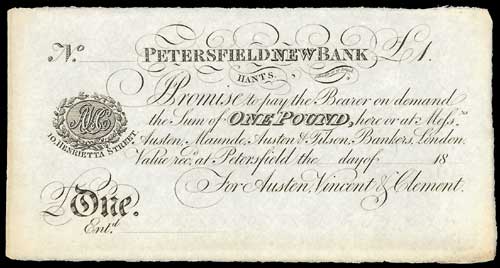 No. PETERSFIELD NEW BANK £1.
HANTS.
I Promise to pay the Bearer on demand
the Sum of ONE POUND, here or at Mess.rs
Austen, Maunde, Austen & Tilson, Bankers, London.
10, HENRIETTA STREET.
Value rec.d at Petersfield the day of 18
For Austen, Vincent & Clement.
£ One.
Ent.d